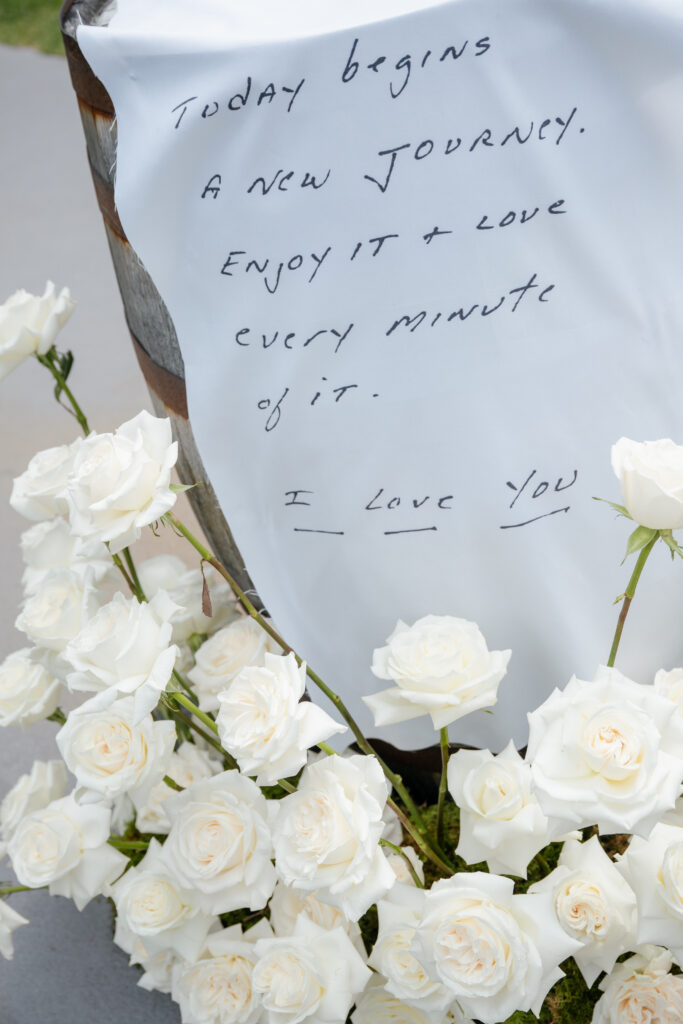 Today begins
A new Journey.
Enjoy it + Love
every minute
of it.
I Love You